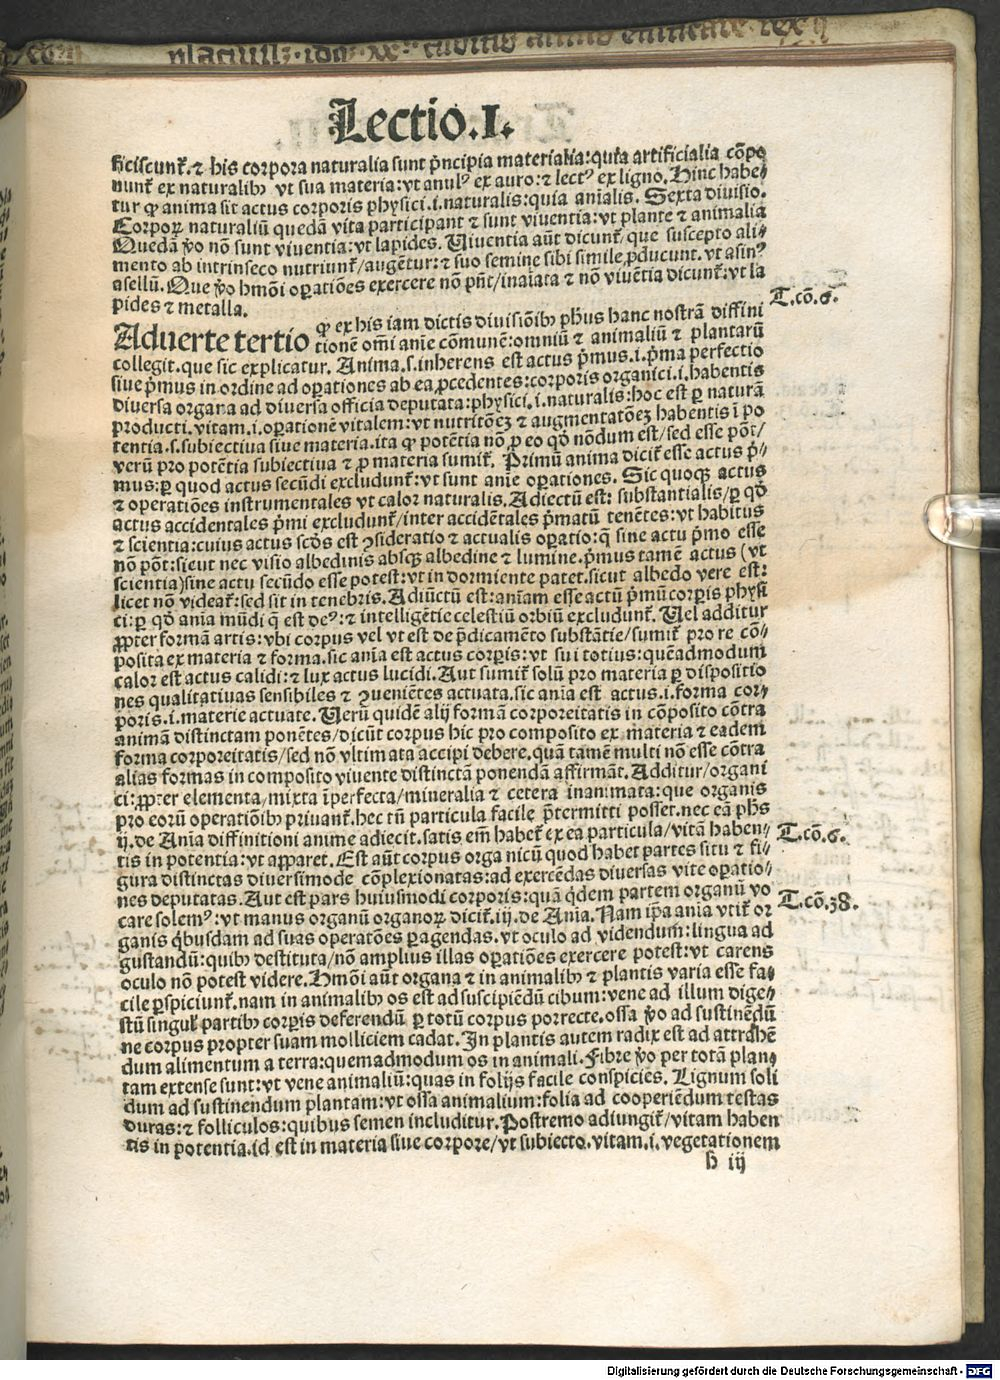 Lectio.I.
ficiscunt᷒.⁊ his corpora naturalia sunt p̃ncipia materialia:quia artificialia cõpo
nunt᷒ ex naturalibꝫ vt sua materia:vt anulꝰ ex auro:⁊ lectꝰ ex ligno. Hinc habe⸗
tur ꝙ anima sit actus corporis physici.i.naturalis:quia aĩalis. Sexta diuisio.
Corporꝝ naturaliũ quedã vita participant ⁊ sunt viuentia:vt plante ⁊ animalia
Quedã ṽo nõ sunt viuentia:vt lapides. Viuentia aũt dicunt᷒/ que suscepto ali⸗
mento ab intrinseco nutriunt᷒/augẽtur:⁊ suo semine sibi simile ꝓducunt. vt asinꝰ
asellũ. Que ṽo hmõi oꝑatiões exercere nõ pñt/inaĩata ⁊ nõ viuẽtia dicunt᷒:vt la
pides ⁊ metalla.
Aduerte tertio ꝙ ex his iam dictis diuisiõibꝫ ph̃us hanc nostrã diffini
T.cõ.6.
tionẽ om̃i anĩe cõmunẽ:omniũ ⁊ animaliũ ⁊ plantarũ
collegit.que sic explicatur. Anima.s.inherens est actus p̃mus.i.p̃ma perfectio
siue p̃mus in ordine ad oꝑationes ab ea ꝓcedentes:corporis organici.i.habentis
diuersa organa ad diuersa officia deputata:physici.i.naturalis:hoc est ꝑ naturã
producti.vitam.i.oꝑationẽ vitalem:vt nutritõeꝫ ⁊ augmentatõeꝫ habentis ĩ po
tentia.s.subiectiua siue materia.ita ꝙ potẽtia nõ ꝓ eo qđ nõdum est/sed esse põt/
verũ pro potẽtia subiectiua ⁊ ꝓ materia sumit᷒. Primũ anima dicit᷒ esse actus p̃⸗
mus:ꝑ quod actus secũdi excludunt᷒:vt sunt anĩe oꝑationes. Sic quoqꝫ actus
⁊ operatiões instrumentales vt calor naturalis. Adiectũ est: substantialis/ꝑ qđ
actus accidentales p̃mi excludunt᷒/inter accidẽtales p̃matũ tenẽtes:vt habitus
⁊ scientia:cuius actus scđs est ꝯsideratio ⁊ actualis oꝑatio:q̃ sine actu p̃mo esse
nõ põt:sicut nec visio albedinis absqꝫ albedine ⁊ lumine.p̃mus tamẽ actus (vt
scientia)sine actu secũdo esse potest:vt in dormiente patet.sicut albedo vere est:
licet nõ videat᷒:sed sit in tenebris. Adiũctũ est:anĩam esse actũ p̃mũ corꝑis physi
ci:ꝑ qđ anĩa mũdi q̃ est deꝰ:⁊ intelligẽtie celestiũ orbiũ excludunt᷒. Uel additur
ꝓpter formã artis:vbi corpus vel vt est de p̃dicamẽto substãtie/sumit᷒ pro re cõ⸗
posita ex materia ⁊ forma.sic anĩa est actus corꝑis:vt sui totius:quẽadmodum
calor est actus calidi:⁊ lux actus lucidi. Aut sumit᷒ solũ pro materia ꝑ dispositio
nes qualitatiuas sensibiles ⁊ ꝯueniẽtes actuata.sic anĩa est actus.i.forma cor⸗
poris.i.materie actuate. Uerũ quidẽ alij formã corporeitatis in cõposito cõtra
animã distinctam ponẽtes/dicũt corpus hic pro composito ex materia ⁊ eadem
forma corporeitatis/sed nõ vltimata accipi debere.quã tamẽ multi nõ esse cõtra
alias formas in composito viuente distinctã ponendã affirmãt. Additur/organi
ci:ꝓpter elementa/mixta ĩperfecta/mineralia ⁊ cetera inanimata:que organis
pro eorũ operatiõibꝫ priuant᷒.hec tñ particula facile p̃termitti posset.nec eã ph̃s
ij.de Anĩa diffinitioni anime adiecit.satis em̃ habet᷒ ex ea particula/vitã haben⸗
T.cõ.6.
tis in potentia:vt apparet. Est aũt corpus organicũ quod habet partes situ ⁊ fi⸗
gura distinctas diuersimode cõplexionatas:ad exercẽdas diuersas vite oꝑatio⸗
nes deputatas. Aut est pars huiusmodi corporis:quã q̃dem partem organũ vo
T.cõ.38.
care solemꝰ:vt manus organũ organoꝝ dicit᷒.iij.de Anĩa. Nam ip̃a anĩa vtit᷒ or
ganis q̃busdam ad suas operatões ꝑagendas.vt oculo ad videndum:lingua ad
gustandũ:quibꝫ destituta/nõ amplius illas oꝑatiões exercere potest:vt carens
oculo nõ potest videre. Hmõi aũt organa ⁊ in animalibꝫ ⁊ plantis varia esse fa⸗
cile ꝑspiciunt᷒.nam in animalibꝫ os est ad suscipiẽdũ cibum:vene ad illum dige⸗
stũ singul᷒ partibꝫ corꝑis deferendũ ꝑ totũ corpus porrecte.ossa ṽo ad sustinẽdũ
ne corpus propter suam molliciem cadat. In plantis autem radix est ad attrahẽ
dum alimentum a terra:quemadmodum os in animali. Fibre ṽo per totã plan⸗
tam extense sunt:vt vene animaliũ:quas in folijs facile conspicies. Lignum soli
dum ad sustinendum plantam:vt ossa animalium:folia ad cooperiẽdum testas
duras:⁊ folliculos:quibus semen includitur. Postremo adiungit᷒/vitam haben
tis in potentia.id est in materia siue corpore/vt subiecto.vitam.i.vegetationem
h iij
Digitalisierung gefördert durch die Deutsche Forschungsgemeinschaft - DFG